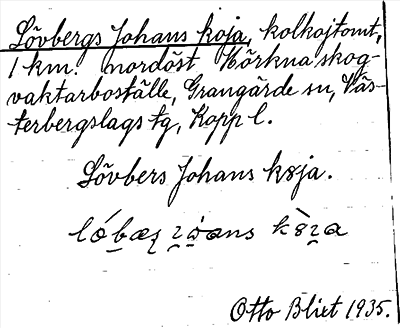 Lövbergs Johans koja, kolkojtomt,
1 km. nordöst Hörkna skog-
vaktarboställe, Grangärde sn, Väs-
terbergslags tg, Kopp l.
Lövbers Johans k8ja.
Otto Blixt 1935.